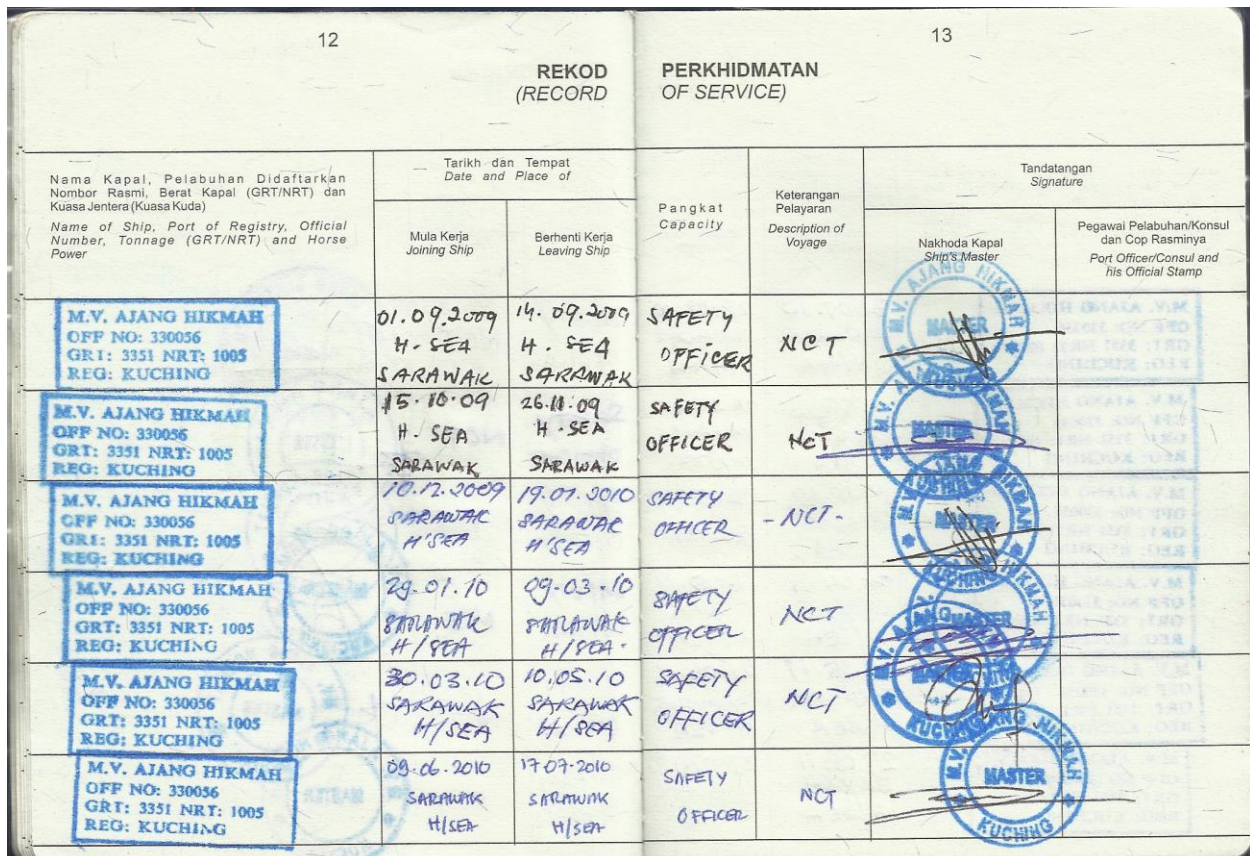 12
13
REKOD PERKHIDMATAN
(RECORD OF SERVICE)
Nama Kapal, Pelabuhan Didaftarkan
Nombor Rasmi, Berat Kapal (GRT/NRT) dan
Kuasa Jentera (Kuasa Kuda)
Name of Ship, Port of Registry, Official
Number, Tonnage (GRT/NRT) and Horse
Power
Tarikh dan Tempat
Date and Place of
Mula Kerja
Joining Ship
Berhenti Kerja
Leaving Ship
Pangkat
Capacity
Keterangan
Pelayaran
Description of
Voyage
Tandatangan
Signature
Nakhoda Kapal
Ship's Master
Pegawai Pelabuhan/Konsul
dan Cop Rasminya
Port Officer/Consul and
his Official Stamp
M.V. AJANG HIKMAH
OFF NO: 330056
GRT: 3351 NRT: 1005
REG: KUCHING
01.09.2009
H. SEA
SARAWAK
14.09.2009
H. SEA
SARAWAK
SAFETY
OFFICER
NCT
M.V. AJANG HIKMAH
MASTER
KUCHING
M.V. AJANG HIKMAH
OFF NO: 330056
GRT: 3351 NRT: 1005
REG: KUCHING
15.10.09
H. SEA
SARAWAK
26.11.09
H. SEA
SARAWAK
SAFETY
OFFICER
NCT
MASTER
M.V. AJANG HIKMAH
OFF NO: 330056
GRT: 3351 NRT: 1005
REG: KUCHING
10.12.2009
SARAWAK
H'SEA
19.01.2010
SARAWAK
H'SEA
SAFETY
OFFICER
- NCT -
M.V. AJANG HIKMAH
MASTER
KUCHING
M.V. AJANG HIKMAH
OFF NO: 330056
GRT: 3351 NRT: 1005
REG: KUCHING
29.01.10
SARAWAK
H/SEA
09.03.10
SARAWAK
H/SEA.
SAFETY
OFFICER
NCT
MASTER
M.V. AJANG HIKMAH
OFF NO: 330056
GRT: 3351 NRT: 1005
REG: KUCHING
30.03.10
SARAWAK
H/SEA
10.05.10
SARAWAK
H/SEA
SAFETY
OFFICER
NCT
MASTER
KUCHING
M.V. AJANG HIKMAH
OFF NO: 330056
GRT: 3351 NRT: 1005
REG: KUCHING
09.06.2010
SARAWAK
H/SEA
17.07.2010
SARAWAK
H/SEA
SAFETY
OFFICER
NCT
M.V. AJANG HIKMAH
MASTER
KUCHING